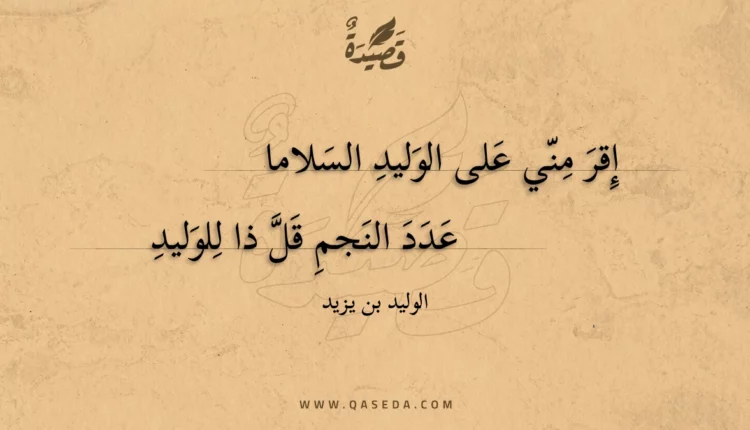 قَصِيْدَةٌ
إِقرَ مِنّي عَلى الوَليدِ السَلاما
عَدَدَ النَجمِ قَلَّ ذا لِلوَليدِ
الوليد بن يزيد
WWW.QASEDA.COM